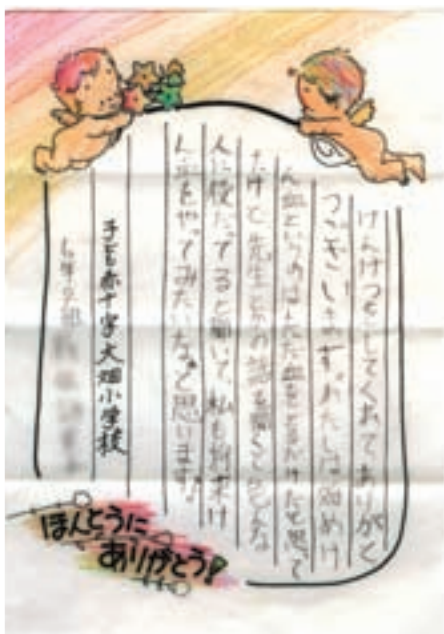 けんけつをしてくれてありがとう
ございます。わたしは初めけ
ん血というのはただ血をとるだけだと思って
たけど先生
の話を聞くと
人に役だってると聞いて、私も将来け
ん血をやってみたいなと思います。
子ども赤十字大畑小学校
ほんとうに
ありがとう!